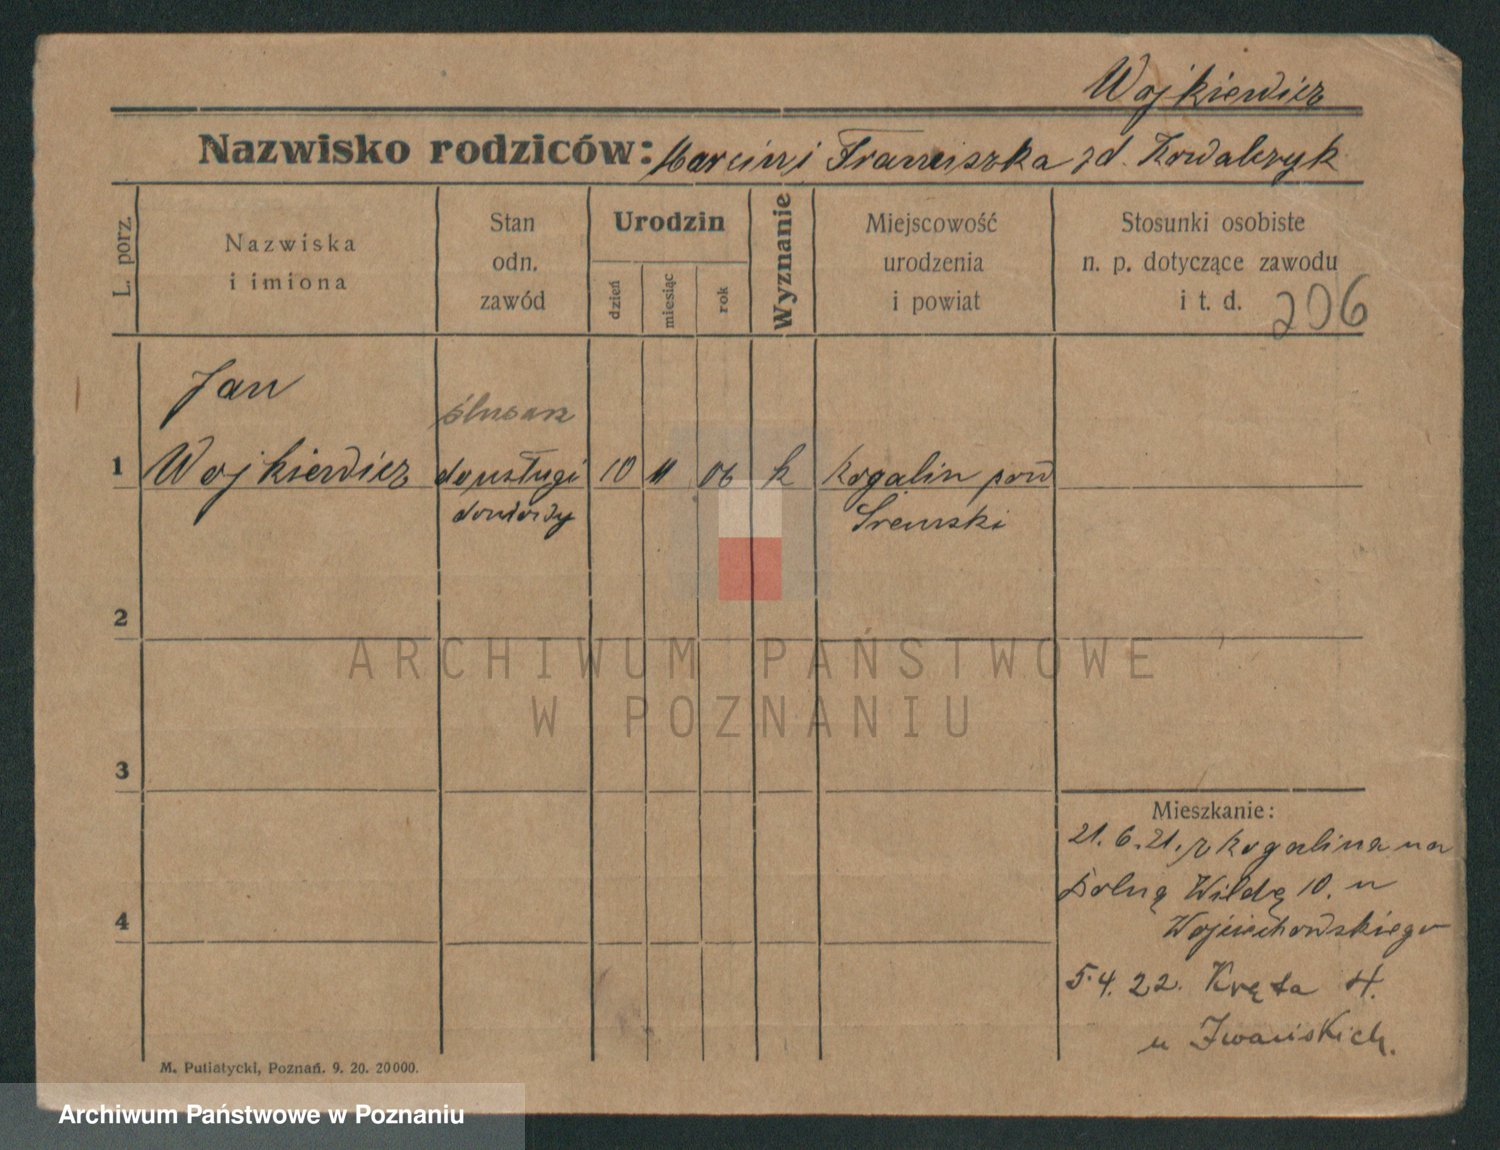 Wojkiewicz
Nazwisko rodziców: Marcin i Franciszka zd. Kowalczyk
L. porz.
Nazwiska
i imiona
Stan
odn.
zawód
Urodzin
dzień
miesiąc
rok
Wyznanie
Miejscowość
urodzenia
i powiat
Stosunki osobiste
n. p. dotyczące zawodu
i t. d.
206
Jan
ślusarz
1 Wojkiewicz do usługi 10 11 06 k Rogalin pow
domowy Śremski
2
ARCHIWUM PAŃSTWOWE
W POZNANIU
3
Mieszkanie:
21.6.21. z Rogalina na
Dolną Wildę 10. u
4
Wojciechowskiego
5.4.22. Kręta 4.
u Iwańskich.
M. Putiatycki, Poznań. 9. 20. 20000.
Archiwum Państwowe w Poznaniu